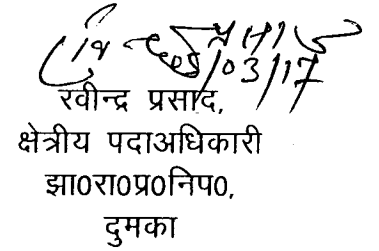 03/17
रवीन्द्र प्रसाद,
क्षेत्रीय पदाअधिकारी
झा0रा0प्र0निप0,
दुमका